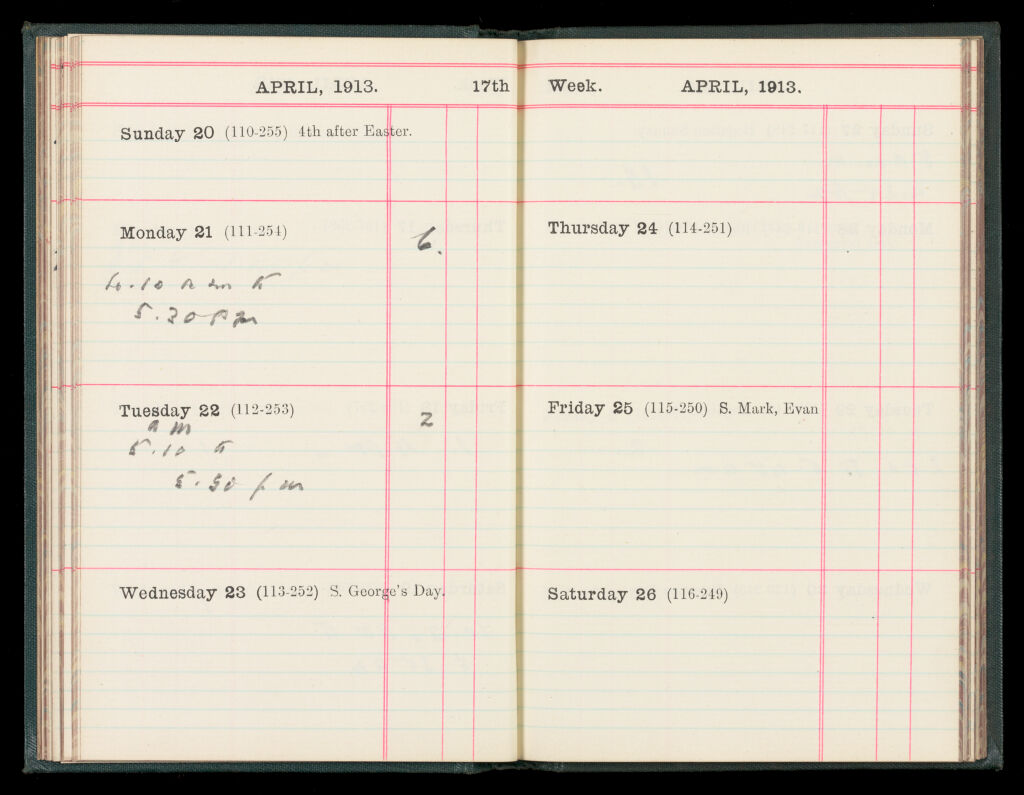 APRIL, 1913. 17th
Sunday 20 (110-255) 4th after Easter.
Monday 21 (111-254)
6.
10 a m to
5.30 pm
Tuesday 22 (112-253)
2
a m
5.10 to
5.30 p m
Wednesday 23 (113-252) S. George's Day.
Week. APRIL, 1913.
Thursday 24 (114-251)
Friday 25 (115-250) S. Mark, Evan
Saturday 26 (116-249)